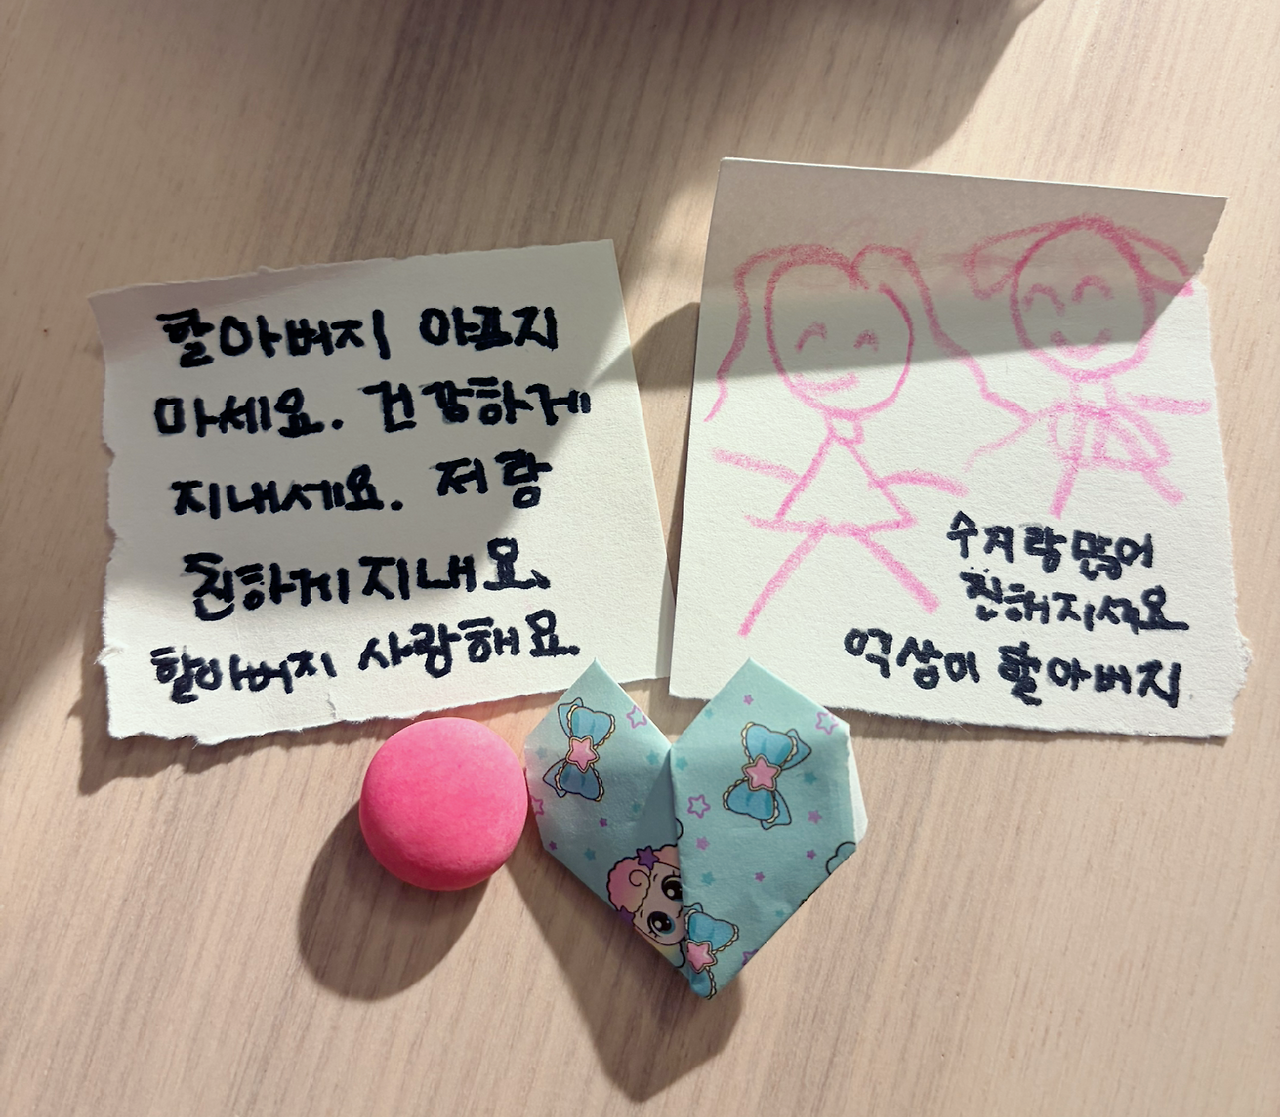 할아버지 아프지
마세요. 건강하게
지내세요. 저랑
친하게지내요.
할아버지 사랑해요.
수저랑많이
친해지세요
역삼이 할아버지